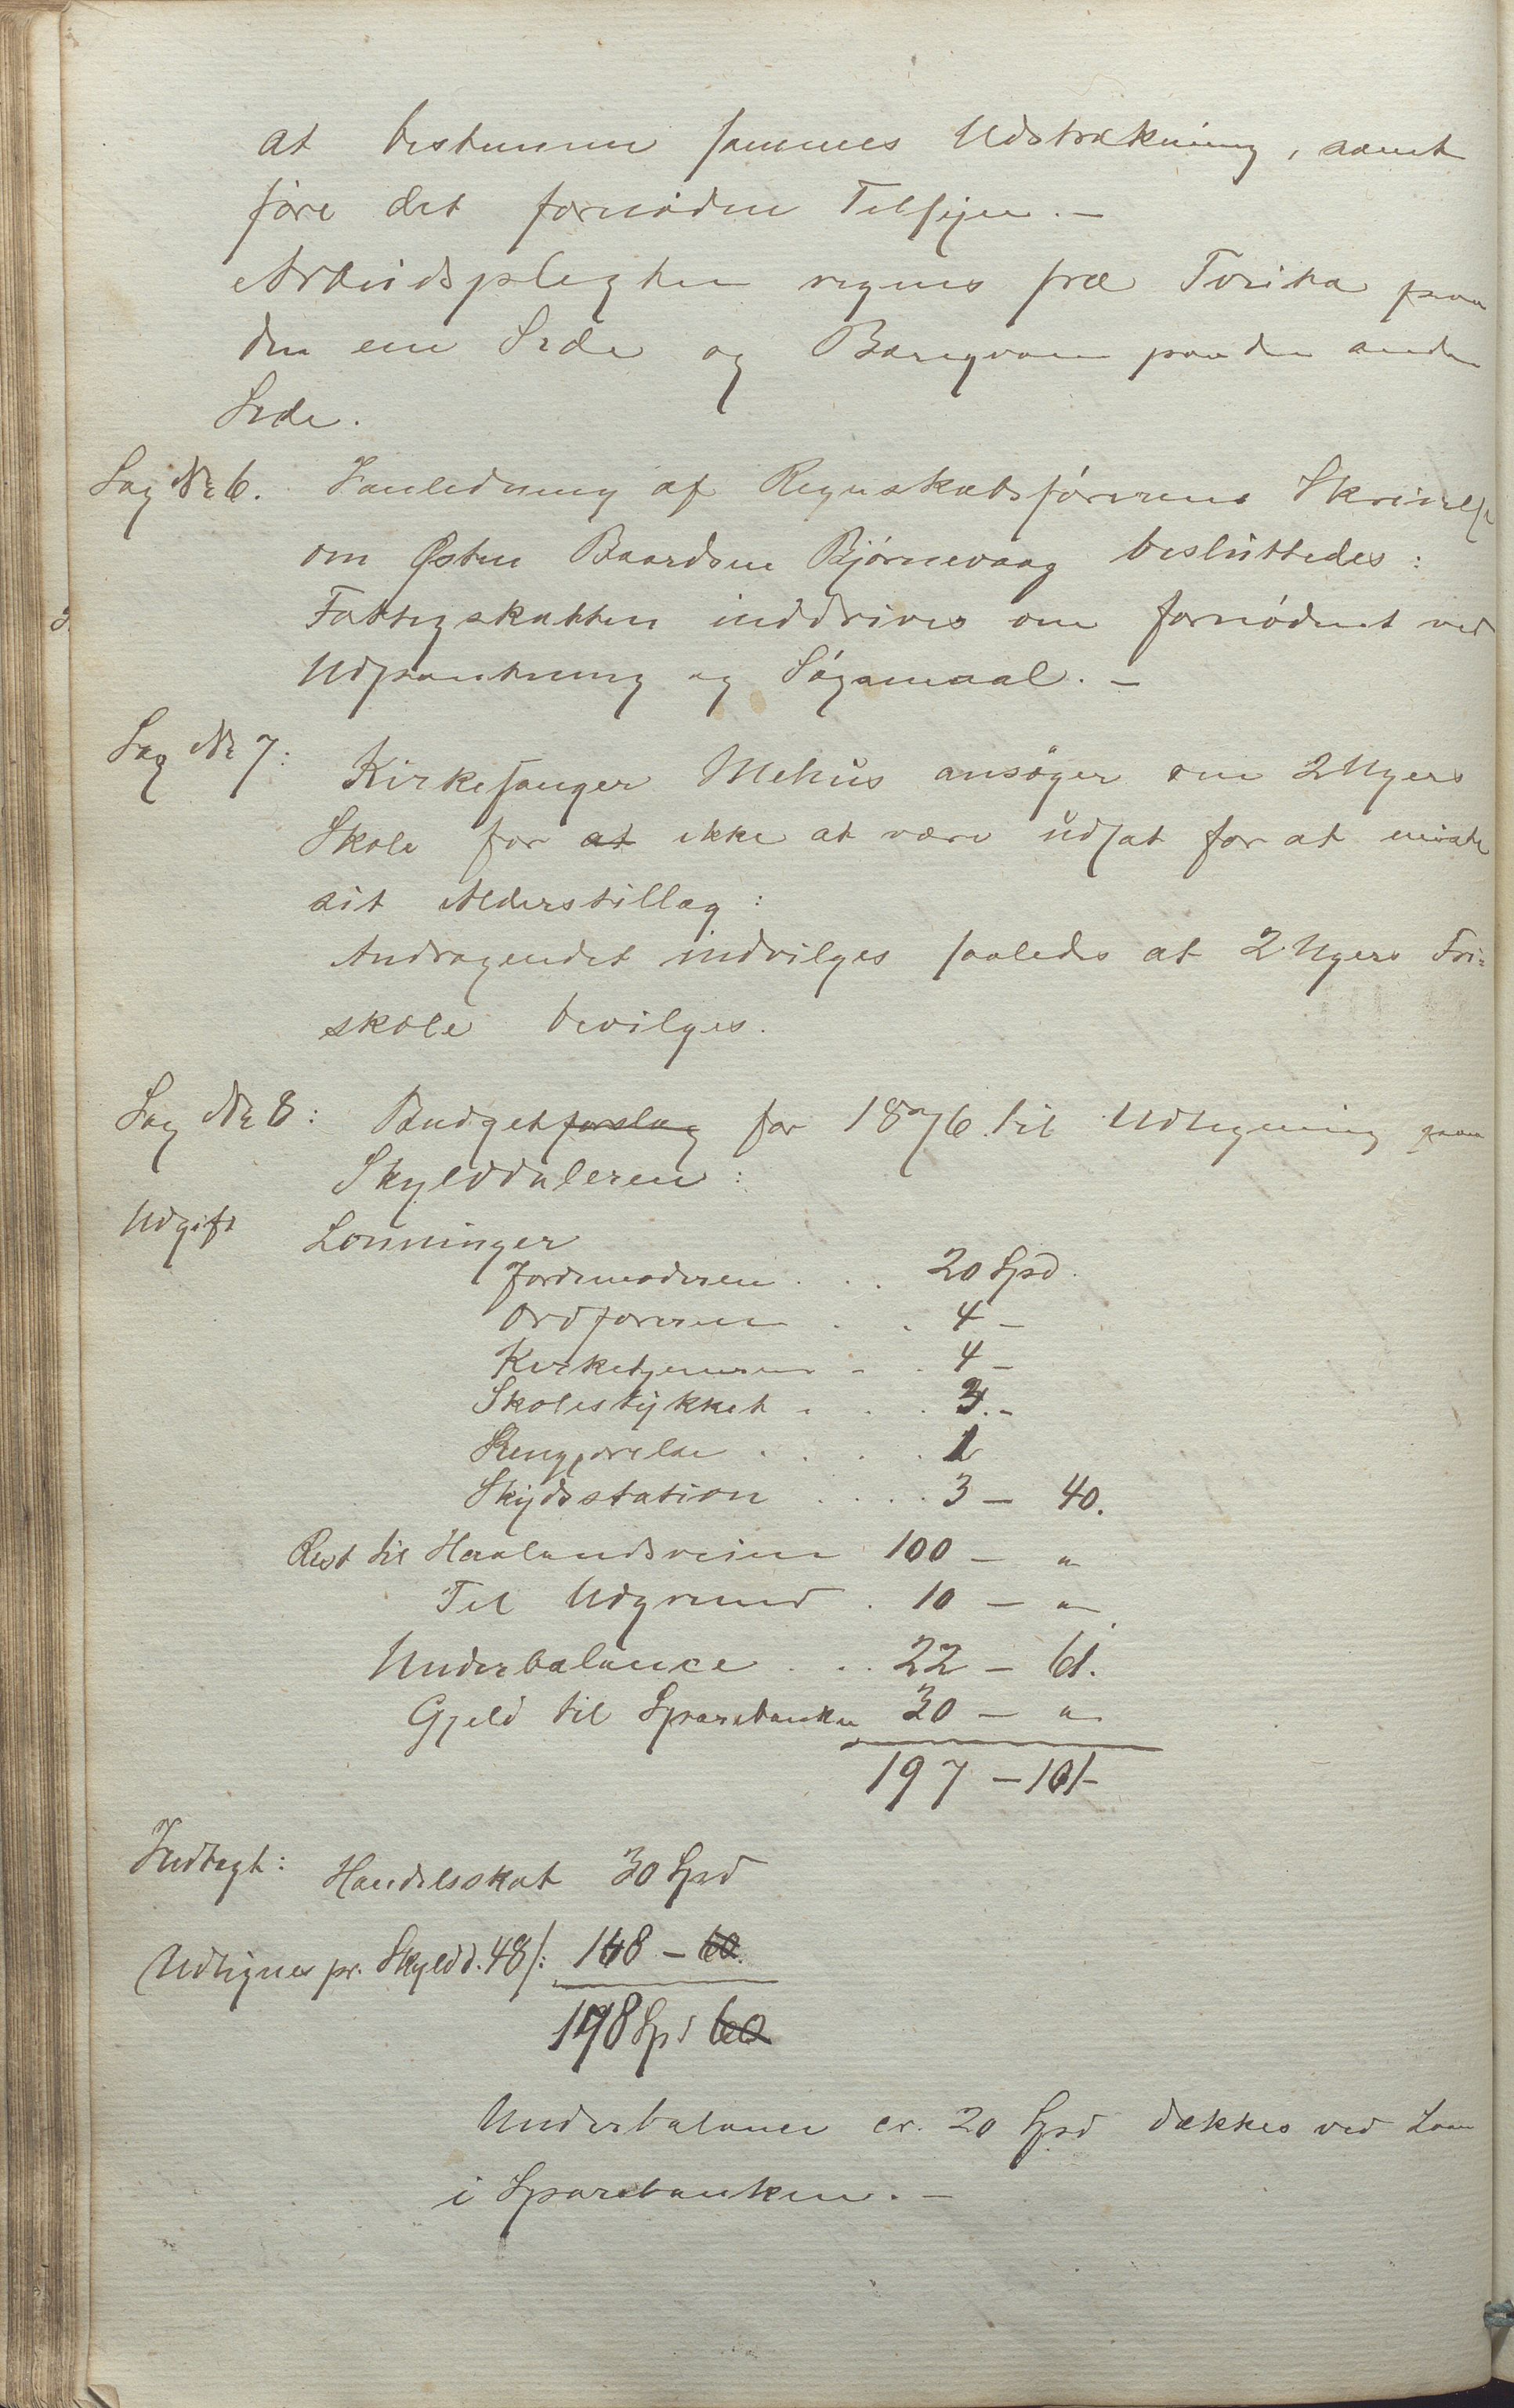 at bestemme sammes Udstrækning, samt
føre det fornødne Tilsyn. –
Arbeidspligten regnes fra Tveita paa
den ene Side og Baregvam paa den anden
Side.
Sag No 6. I anledning af Regnskabsførerens Skrivelse
om Østen Baardsen Bjørnevaag besluttedes:
Fattigskatten inddrives om fornødent ved
Udpantning og Søgsmaal. –
Sag No 7: Kirkesanger Mehus ansøger om 2 Ugers
Skole for at ikke at være udsat for at miste
sit Alderstillæg:
Andragendet indvilges saaledes at 2 Ugers Fri-
skole bevilges.
Sag No 8: Budgetforslag for 1876 til Udligning paa
Skylddaleren:
Udgift Lønninger
Jordemoderen . . . 20 Spd.
Ordføreren . . 4 –
Kirketjeneren . . 4 –
Skolestykket . . . 3. –
Rengjørelse . . . . 1
Skydsstation . . . . 3 – 40.
Rest til Haalandsveien 100 – "
Til Udgrund . 10 – "
Underbalance . . . 22 – 61.
Gjeld til Sparebanken 30 – "
197 – 101 –
Indtægt: Handelsskat 30 Spd
Udlignes pr. Skyldd. 48/: 168 – 60.
198 Spd 60
Underbalance cr. 20 Spd dækkes ved Laan
i Sparebanken. –